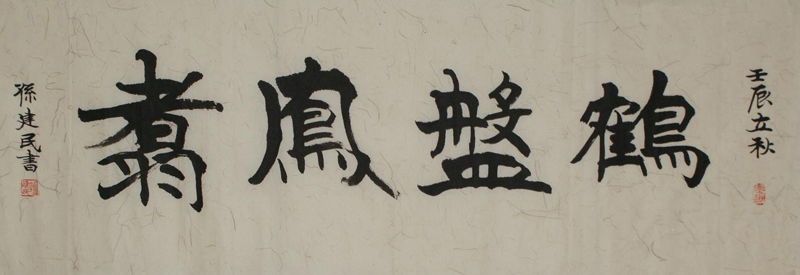 壬辰立秋
鶴盤鳳翥
孫建民書